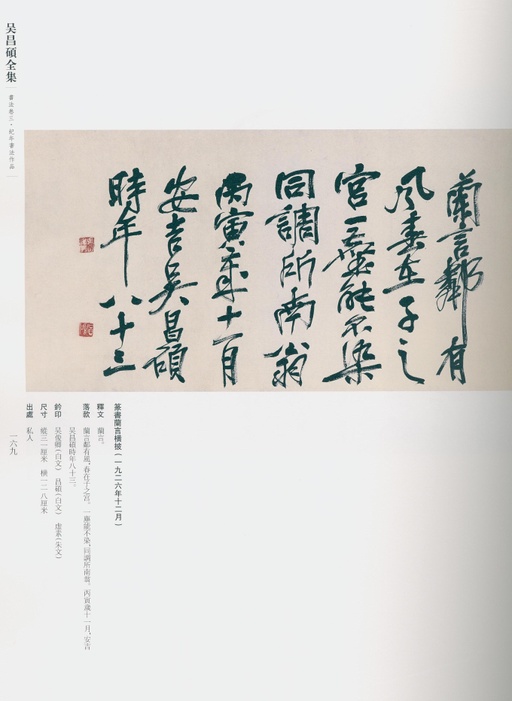 吴昌碩全集
書法卷三·紀年書法作品
蘭言鄰有
風春在子之
宮一塵能不染
同調所南翁
丙寅歲十一月
安吉吳昌碩
時年八十三
篆書蘭言橫披(一九二六年十二月)
釋文 蘭言。
落款 蘭言鄰有風,春在子之宮。一塵能不染,同調所南翁。丙寅歲十一月,安吉
吳昌碩時年八十三。
鈐印 吳俊卿(白文) 昌碩(白文) 虛素(朱文)
尺寸 縱三一厘米 橫一二八厘米
出處 私人
一六九